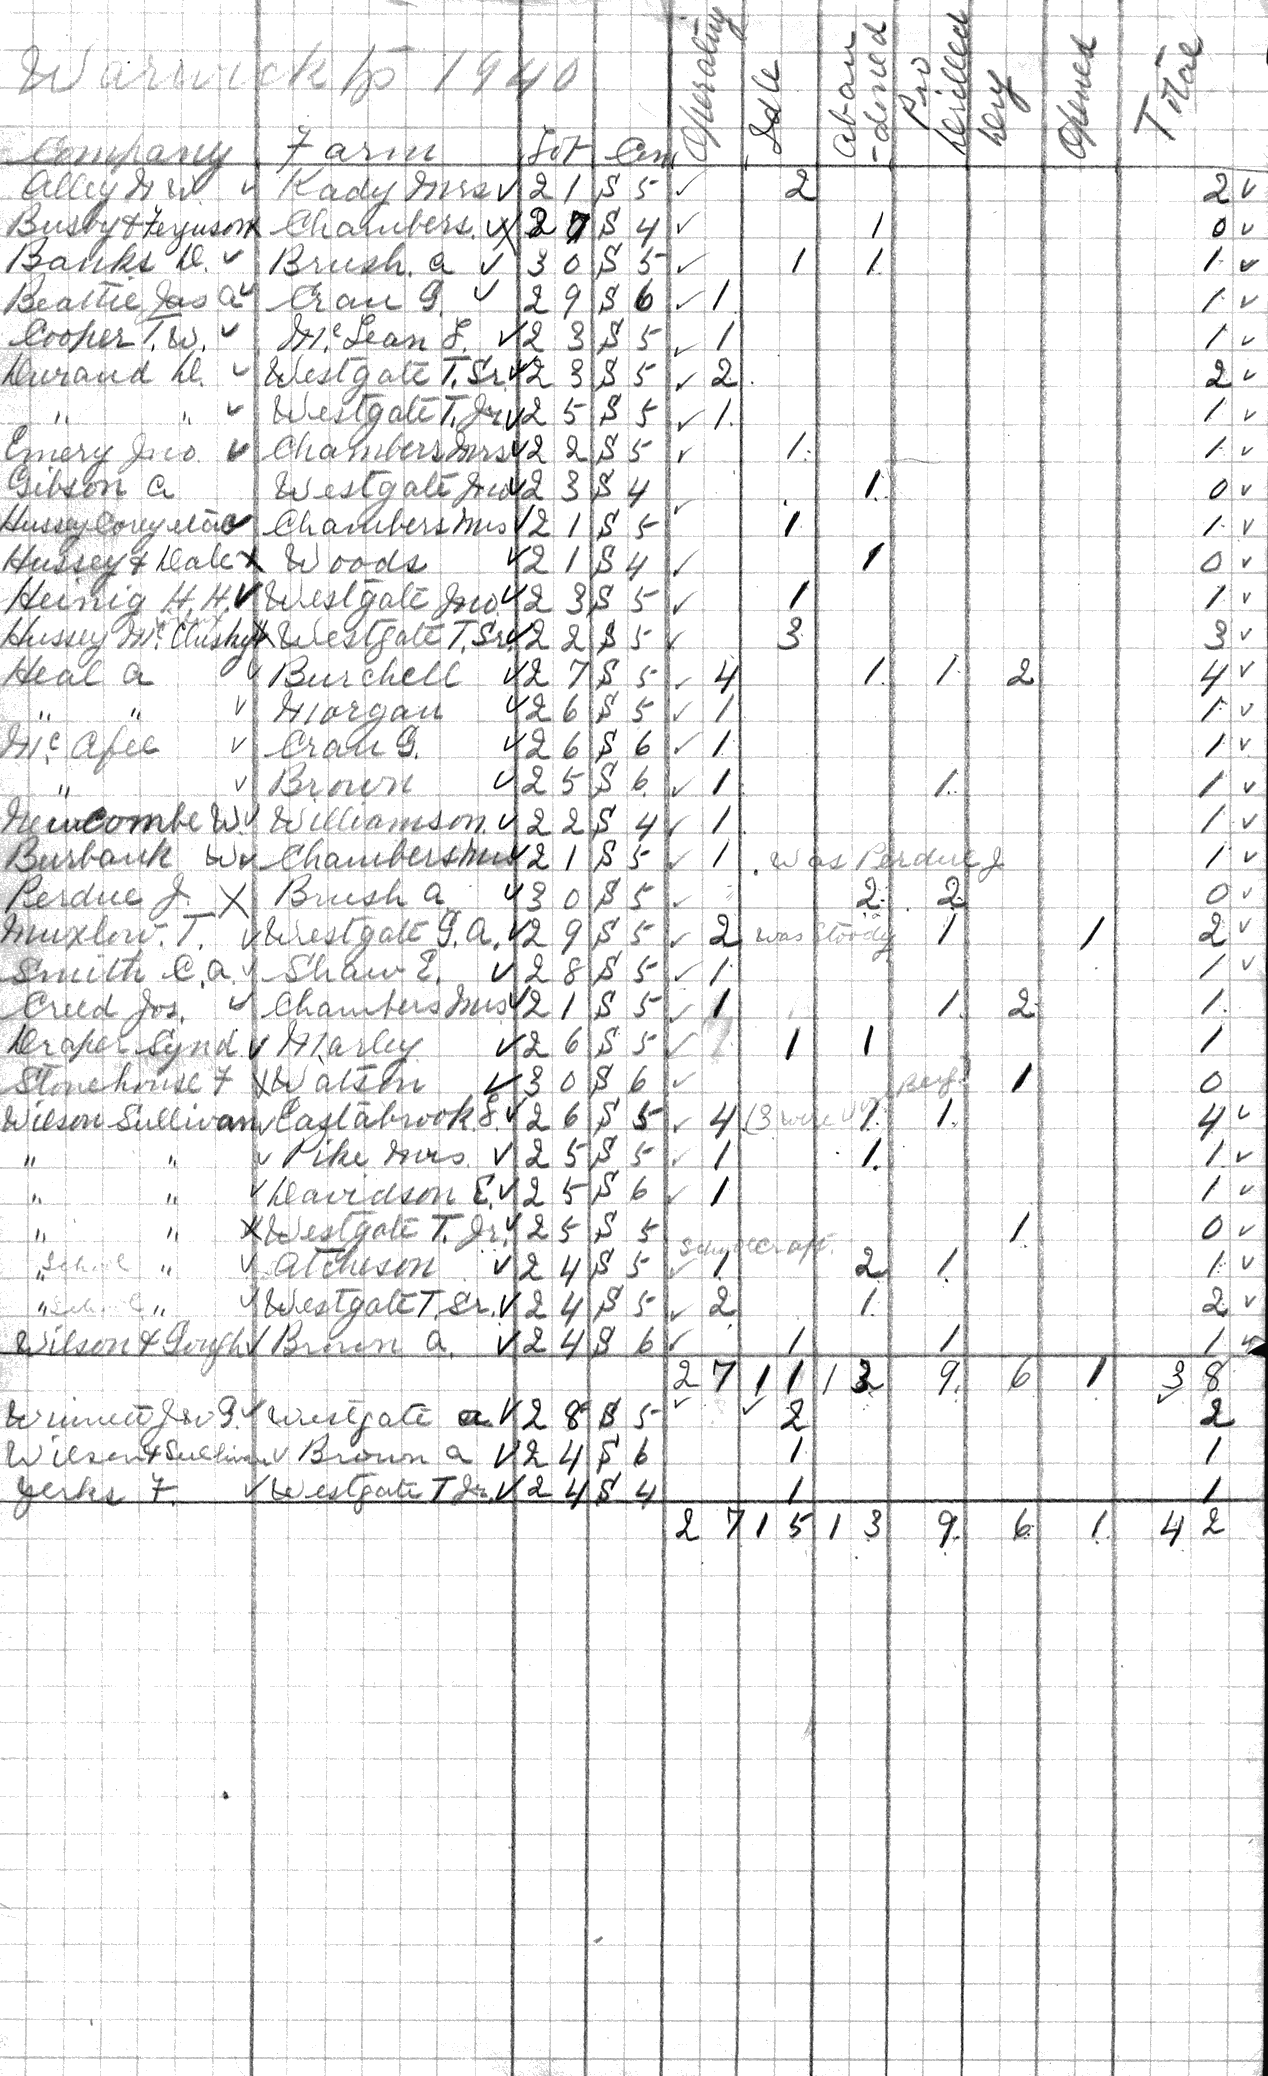 Warwick tp 1940
Company Farm Lot Con Operating Idle Aban-doned Pro Drilled Dry Opened Total
Alley W. ✓ Kady Mrs ✓ 21 S 5 ✓ 2 2 ✓
Busby & Ferguson x Chambers. ✓ X 27 S 4 ✓ 1 0 ✓
Banks D. ✓ Brush. A ✓ 30 S 5 ✓ 1 1 1 ✓
Beattie Jas A ✓ Cran G. ✓ 29 S 6 ✓ 1 1 ✓
Cooper T.W. ✓ McLean F. ✓ 23 S 5 ✓ 1 1 ✓
Durand D. ✓ Westgate T. Sr. ✓ 23 S 5 ✓ 2 2 ✓
" " ✓ Westgate T. Jr ✓ 25 S 5 ✓ 1 1 ✓
Emery Jno. ✓ Chambers Mrs ✓ 22 S 5 ✓ 1 1 ✓
Gibson A Westgate Jno ✓ 23 S 4 ✓ 1 0 ✓
Hussey Covey ✓ Chambers Mrs ✓ 21 S 5 1 1 ✓
Hussey & Dale X Woods ✓ 21 S 4 ✓ 1 0 ✓
Heinig H.H. ✓ Westgate Jno. ✓ 23 S 5 ✓ 1 1 ✓
Hussey Mc. Clusky X Westgate T. Sr. ✓ 22 S 5 ✓ 3 3 ✓
Heal A ✓ Burchell ✓ 27 S 5 ✓ 4 1 1 2 4 ✓
" " ✓ Morgan ✓ 26 S 5 ✓ 1 1 ✓
Mc. Afee ✓ Cran G. ✓ 26 S 6 ✓ 1 1 ✓
" ✓ Brown ✓ 25 S 6 ✓ 1 1 1 ✓
Newcombe W. ✓ Williamson ✓ 22 S 4 ✓ 1 1 ✓
Burbank W ✓ Chambers Mrs ✓ 21 S 5 ✓ 1 was Perdue J 1 ✓
Perdue J. X Brush A ✓ 30 S 5 ✓ 2 2 0 ✓
Muxlow. T. ✓ Westgate G.A. ✓ 29 S 5 ✓ 2 was Stoody 1 1 2 ✓
Smith C.A. ✓ Shaw E. ✓ 28 S 5 ✓ 1 1 ✓
Creed Jos. ✓ Chambers Mrs ✓ 21 S 5 ✓ 1 1 2 1
Draper Synd ✓ Marley ✓ 26 S 5 ✓ 1 1 1
Stonehouse F X Watson ✓ 30 S 6 ✓ 1 0
Wilson Sullivan ✓ Eastabrook. F. ✓ 26 S 5 ✓ 4 (3 were 1 1 4 ✓
" " ✓ Pike Mrs. ✓ 25 S 5 ✓ 1 1 1 ✓
" " ✓ Davidson E. ✓ 25 S 6 ✓ 1 1 ✓
" " X Westgate T. Jr. ✓ 25 S 5 1 0 ✓
" School " ✓ Atcheson ✓ 24 S 5 ✓ 1 Schoolcraft. 2 1 1 ✓
" School " ✓ Westgate T. Sr. ✓ 24 S 5 ✓ 2 1 2 ✓
Wilson & Gough ✓ Brown A. ✓ 24 S 6 ✓ 1 1 1 ✓
27 11 13 9 6 1 38
Winnett Jno G. ✓ Westgate A ✓ 28 S 5 ✓ ✓ 2 ✓ 2
Wilson & Sullivan ✓ Brown A ✓ 24 S 6 1 1
Yerks F. ✓ Westgate T Jr. ✓ 24 S 4 1 1
27 15 13 9 6 1 42